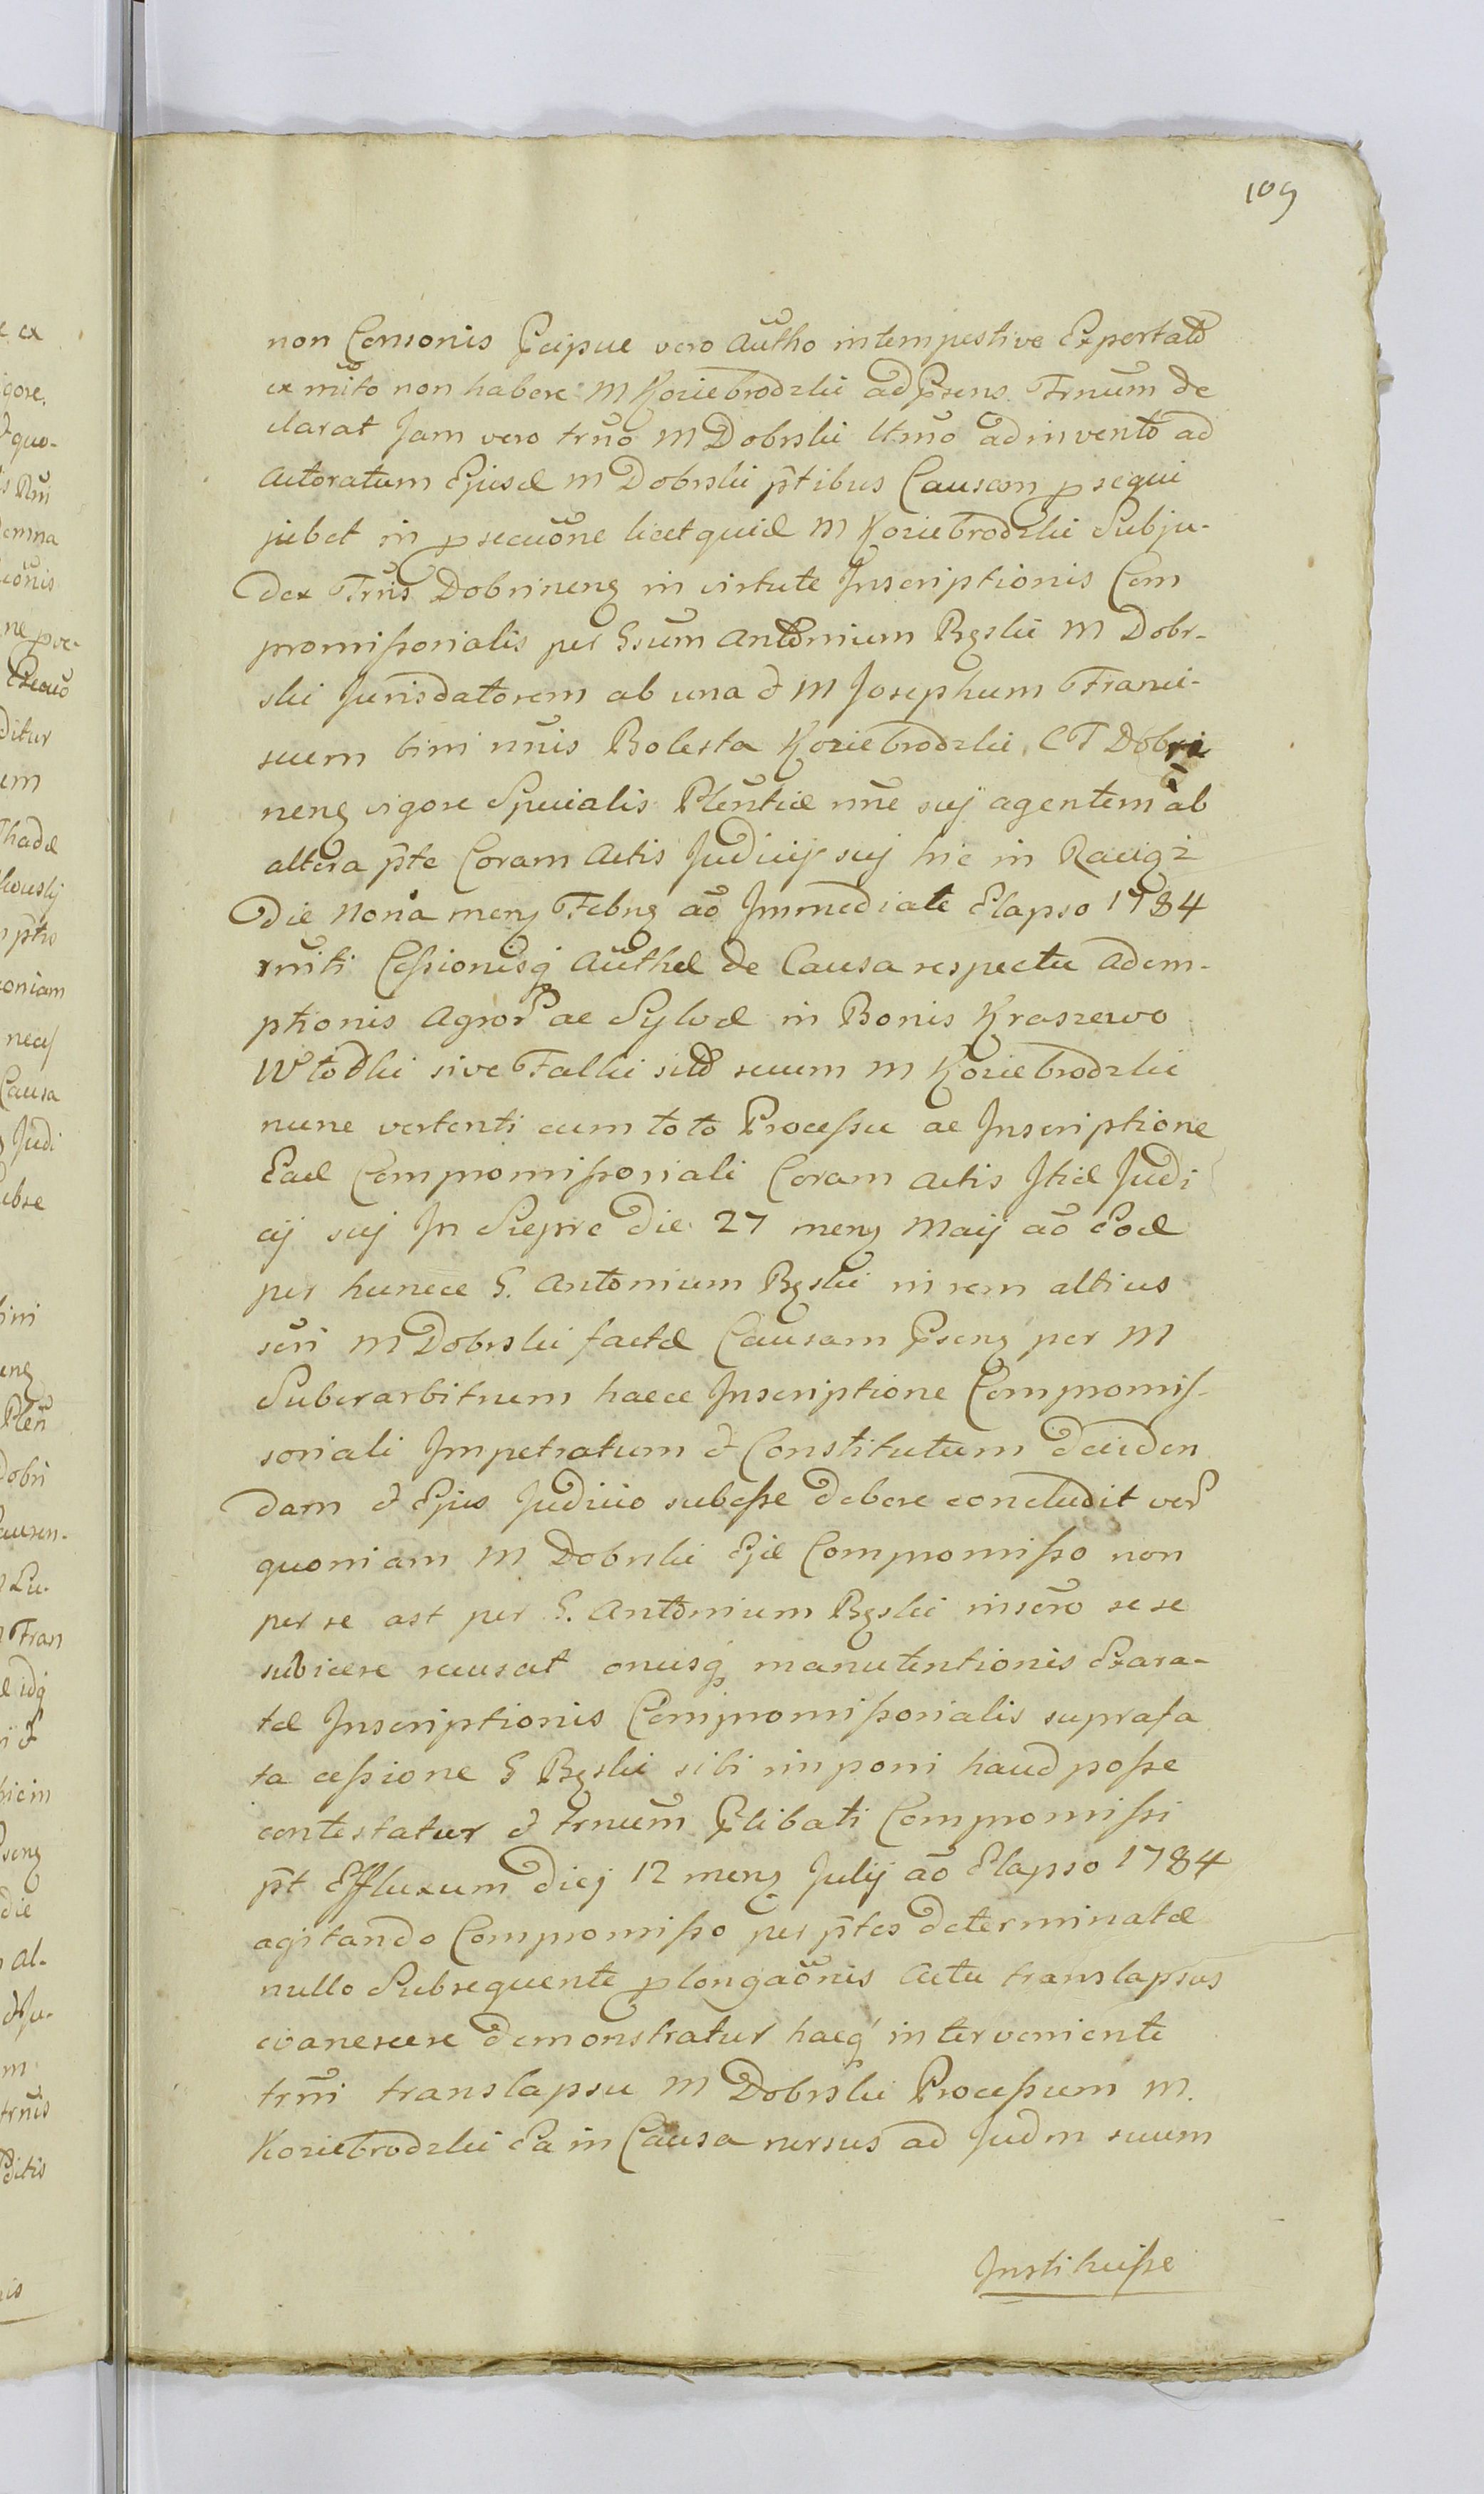 109
non Consonis Pcipue vero Autho intempestive Exportatō
ex mito non habere M Koziebrodzki ad Psens Trnum de
clarat Jam vero trno M Dobrski ltmo ad invento ad
Actoratum Ejusd M Dobrski ptibus Causam psequi
jubet in psecuone licet quid M Koziebrodzki Subju-
dex Trris Dobrinens in virtute Inscriptionis Com
promissorialis per Gsum Antonium Rgski M Dobr-
ski Jurisdatorem ab una & M Josephum Franci-
scum bini nnis Bolesta Koziebrodzki CT Dobri
nens vigore Specialis Plentiæ nne suj agentem ab
altera pte Coram Actis Judicij suj hic in Raciąż
Die Nona mens Febrs ao Immediate Elapso 1784
rniti Cessionisq Authæ de Causa respectu Adem-
ptionis Agror ac Sylvæ in Bonis Kraszewo
Włodki sive Falki sitō secum M Koziebrodzki
nunc vertenti cum toto Processu ac Inscriptione
Ead Compromissoriali Coram Actis Itid Judi
cij suj In Sieprc Die 27 mens Maij ao Eod
per huncce G. Antonium Rgski in rem altius
sri M Dobrski factæ Causam Psens per M
Suberarbitrum hacce Inscriptione Compromis-
soriali Impetratum & Constitutum deciden
dam & Ejus Judicio subesse debere concludit ver
quoniam M Dobrski Ejd Compromisso non
per se ast per G. Antonium Rgski inscro se se
subicere recusat onusq manutentionis Exara-
tæ Inscriptionis Compromissorialis suprafa
ta cessione G Rgski sibi imponi haud posse
contestatur & trnum Plibati Compromissi
pt Effluxum Diej 12 mens Julij ao Elapso 1784
agitando Compromisso per ptes determinatæ
nullo Subsequente plongaonis Actu translapsus
evanescere demonstratur hacq interveniente
trni translapsu M Dobrski Processum M.
Koziebrodzki Ea in Causa rursus ad Judm suum
Instituisse